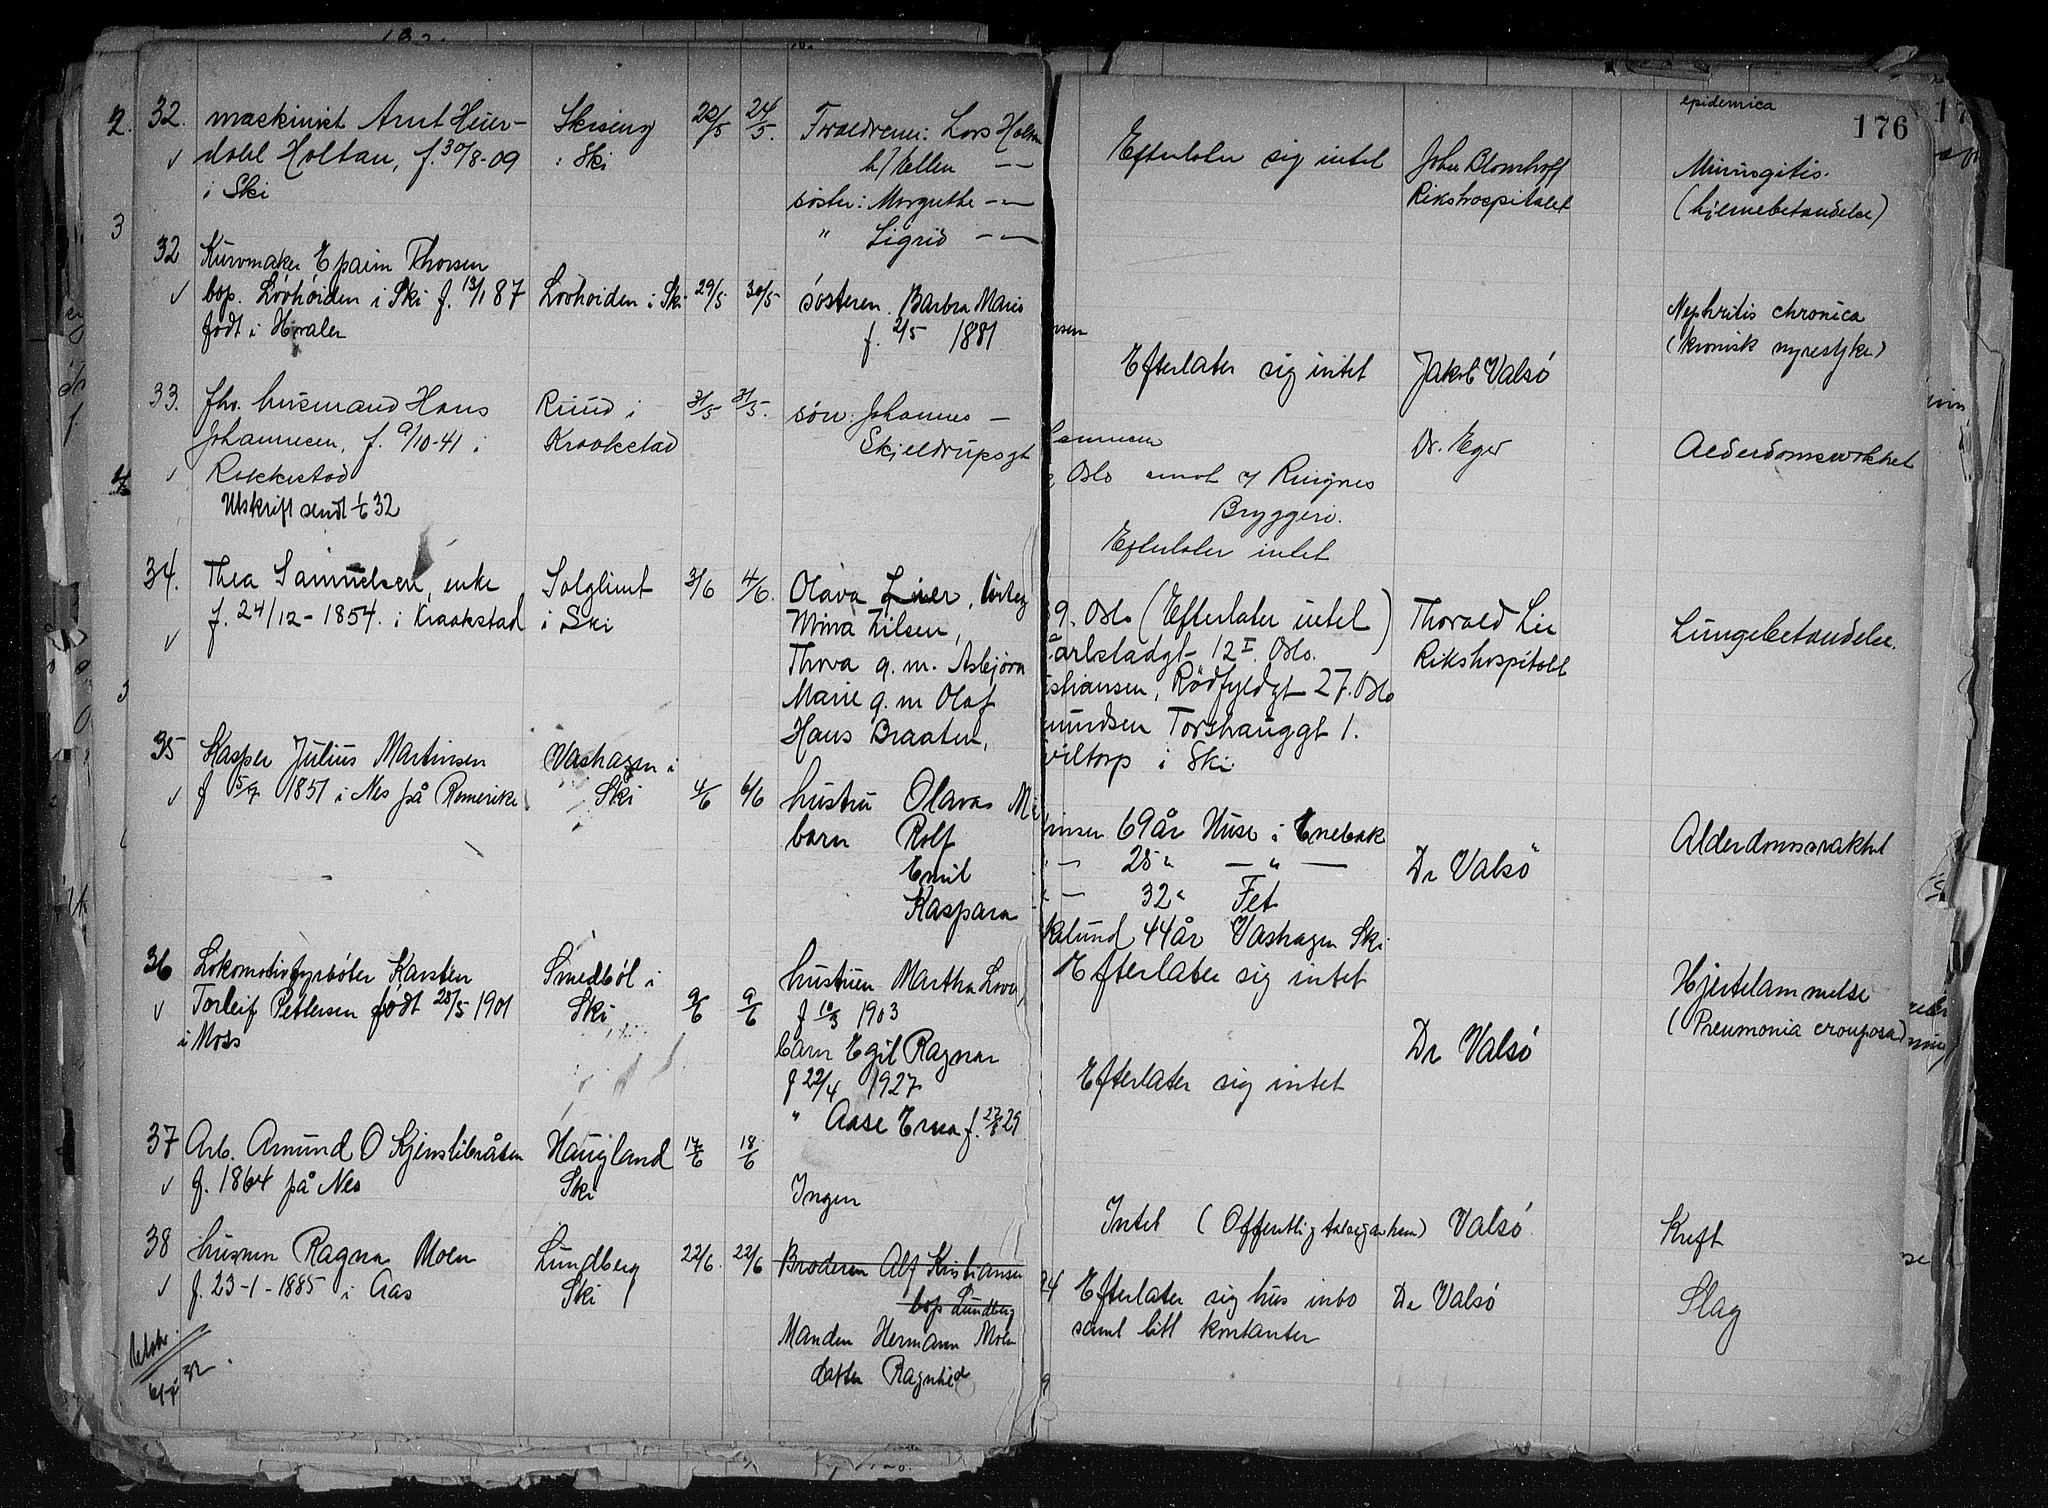 176
32. maskinist Arnt Heier- Skiseng 22/5 24/5. Foraeldrene: Lars Holtan
dahl Holtan, f. 30/8-09 i Ski h/ Ellen — —
i Ski søster: Margrethe — —
" Sigrid — —
Efterlater sig intet John Blomhoff epidemica
Rikshospitalet Miningitis.
(hjernebetændelse)
32 Kurvmaker Epaim Thorsen
bop. Lövhöiden i Ski f. 13/1 87 Lovhoiden i Ski 29/5 30/5 søsteren. Barbra Marie
født i Hvaler f. 2/5 1881
Efterlater sig intet Jakob Valsö Nephritis chronica
(kronisk nyresyke)
33. fhv. husmand Hans Ruud i 31/5 31/5. søn: Johannes —
Johannesen, f. 9/10-41 i Kraakstad Skjeldrupsgt
Rakkestad
Utskrift sendt 1/6 32
Dr. Eger Alderdomsvakhet
Oslo ansat v/ Ringnes
Bryggeri.
Efterlater intet
34. Thea Samuelsen, enke Solglimt 3/6 4/6. Olava Lier,
f. 24/12-1854. i Kraakstad i Ski Mina Nilsen,
Thova g.m. Asbjörn
Marie g.m Olaf
Hans Braaten,
9. Oslo (Efterlater intet) Thorvald Lie Lungebetændelse.
arlstadgt 12 I. Oslo. Rikshospitalet
stiansen, Rödfyldgt 27. Oslo
mundsen Torshauggt 1.
viltorp i Ski
35 Kasper Julius Martinsen Vashagen i
f 15/7 1851 i Nes på Romerike Ski 4/6 6/6 hustru Olava M
barn Rolf
Emil
Kaspara
insen 69 år Huse i Enebak Alderdomssvakhet
— 25 " — " — Dr Valsö
— 32 " Fet
klund 44 år Vashagen Ski
Efterlater sig intet
36 Lokomotivfyrböter Karsten Smedböl i hustruen Martha Lovi
Torleif Pettersen født 28/5 1901 Ski 9/6 9/6 f 10/3 1903
i Moss barn Egil Ragnar
f 22/4 1927
" Aase Erna f. 27/8 29
Dr Valsö Hjertelammelse
(Pneumonia crouposa)
Efterlater sig intet
37 Arb. Amund O Kjenslibråten Haugland 17/6 18/6
f. 1864 på Nes Ski Ingen
Intet (Offentlig ) Valsö Kreft
38 husmm Ragna Moen Lundberg 22/6. 22/6 Broderen Alf Kristiansen
f. 23-1-1885 i Aas Ski bop Lundberg
Manden Hermann Moen
datter Ragnhild
94 Efterlater sig hus inbo Dr Valsö Slag
samt litt kontanter